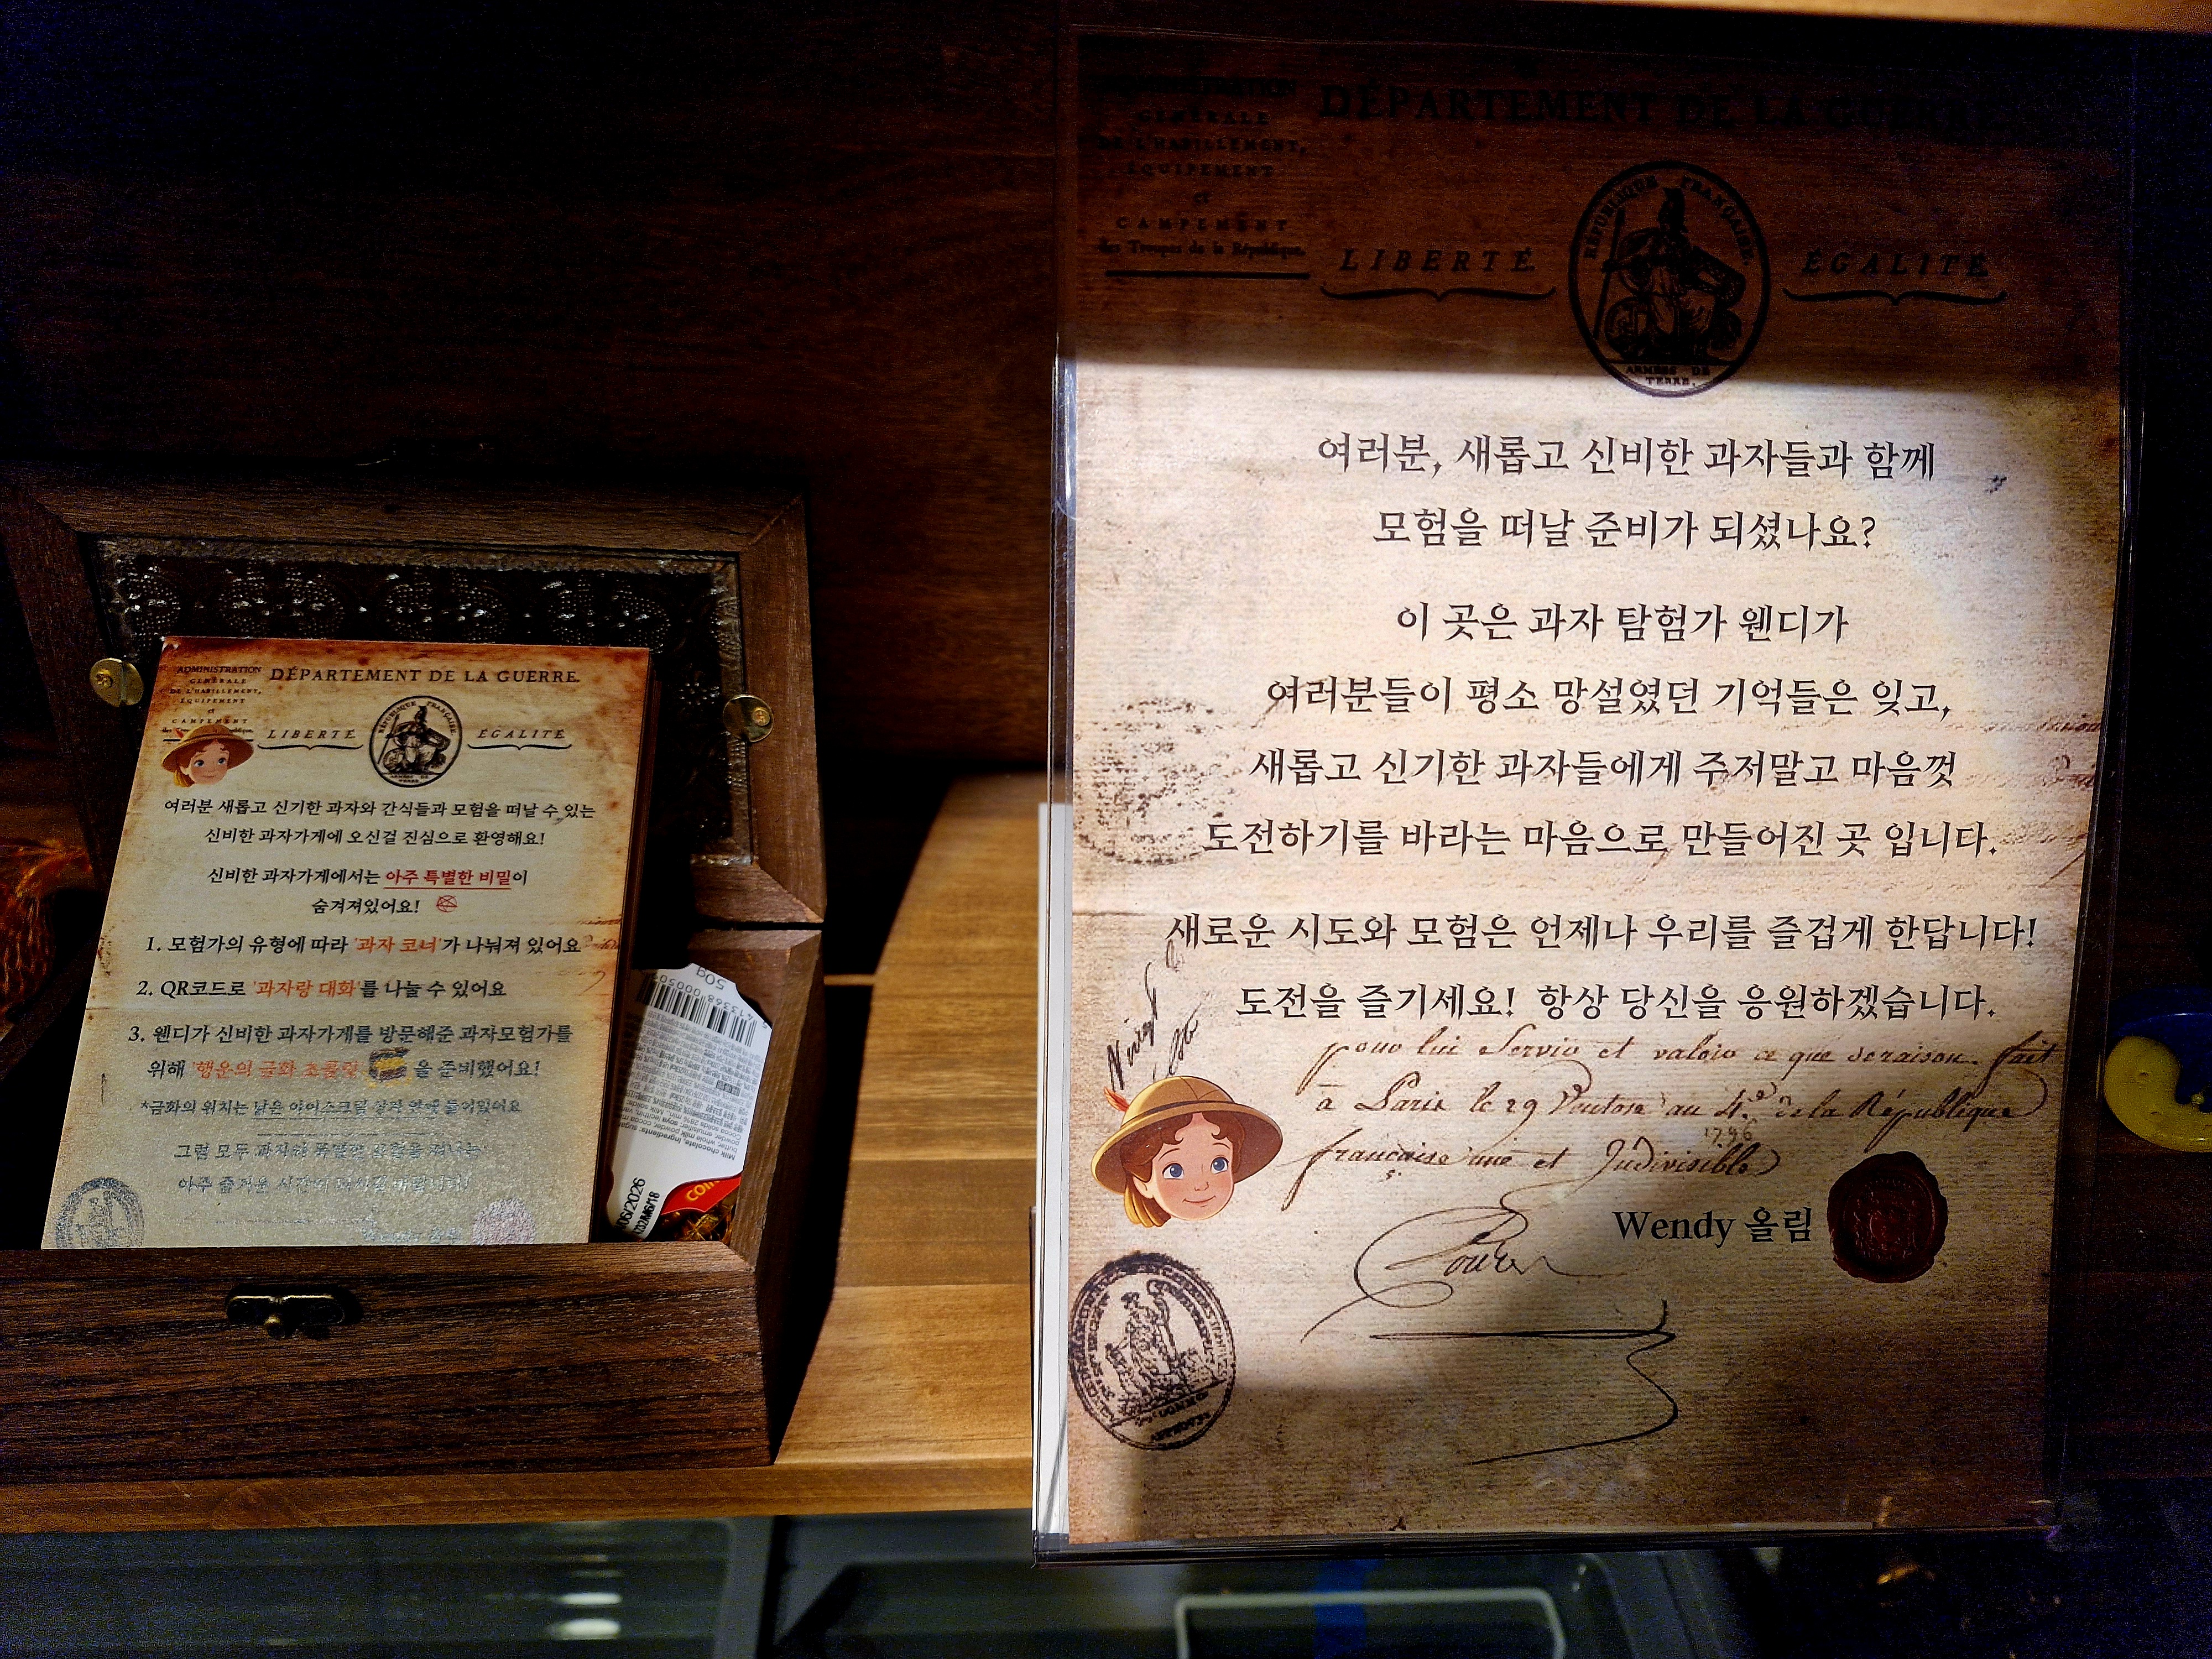 ADMINISTRATION
GÉNÉRALE
DE L'HABILLEMENT,
ÉQUIPEMENT
et
CAMPEMENT
DÉPARTEMENT DE LA GUERRE.
LIBERTÉ
RÉPUBLIQUE FRANÇAISE
ÉGALITÉ
여러분 새롭고 신기한 과자와 간식들과 모험을 떠날 수 있는
신비한 과자가게에 오신걸 진심으로 환영해요!
신비한 과자가게에서는 아주 특별한 비밀이
숨겨져있어요!
1. 모험가의 유형에 따라 '과자 코너'가 나눠져 있어요
2. QR코드로 '과자랑 대화'를 나눌 수 있어요
3. 웬디가 신비한 과자가게를 방문해준 과자모험가를
위해 '행운의 금화 초콜릿 을 준비했어요!
*금화의 위치는 낡은 아이스크림 들어있어요
그럼 모두 과자와
아주 즐거운 시간이
50g
Milk chocolate, Ingredients: sugar,
06/2026
COIN
GÉNÉRALE
DE L'HABILLEMENT,
ÉQUIPEMENT
et
CAMPEMENT
des Troupes de la République.
DÉPARTEMENT DE LA GUERRE.
LIBERTÉ
RÉPUBLIQUE FRANÇAISE.
ARMÉES DE
TERRE.
ÉGALITÉ
여러분, 새롭고 신비한 과자들과 함께
모험을 떠날 준비가 되셨나요?
이 곳은 과자 탐험가 웬디가
여러분들이 평소 망설였던 기억들은 잊고,
새롭고 신기한 과자들에게 주저말고 마음껏
도전하기를 바라는 마음으로 만들어진 곳 입니다.
새로운 시도와 모험은 언제나 우리를 즐겁게 한답니다!
도전을 즐기세요! 항상 당신을 응원하겠습니다.
pour lui Servir et valoir ce que de raison. fait
à Paris le 29 Ventose au 4.e de la République
1796
française une et Indivisible
Wendy 올림